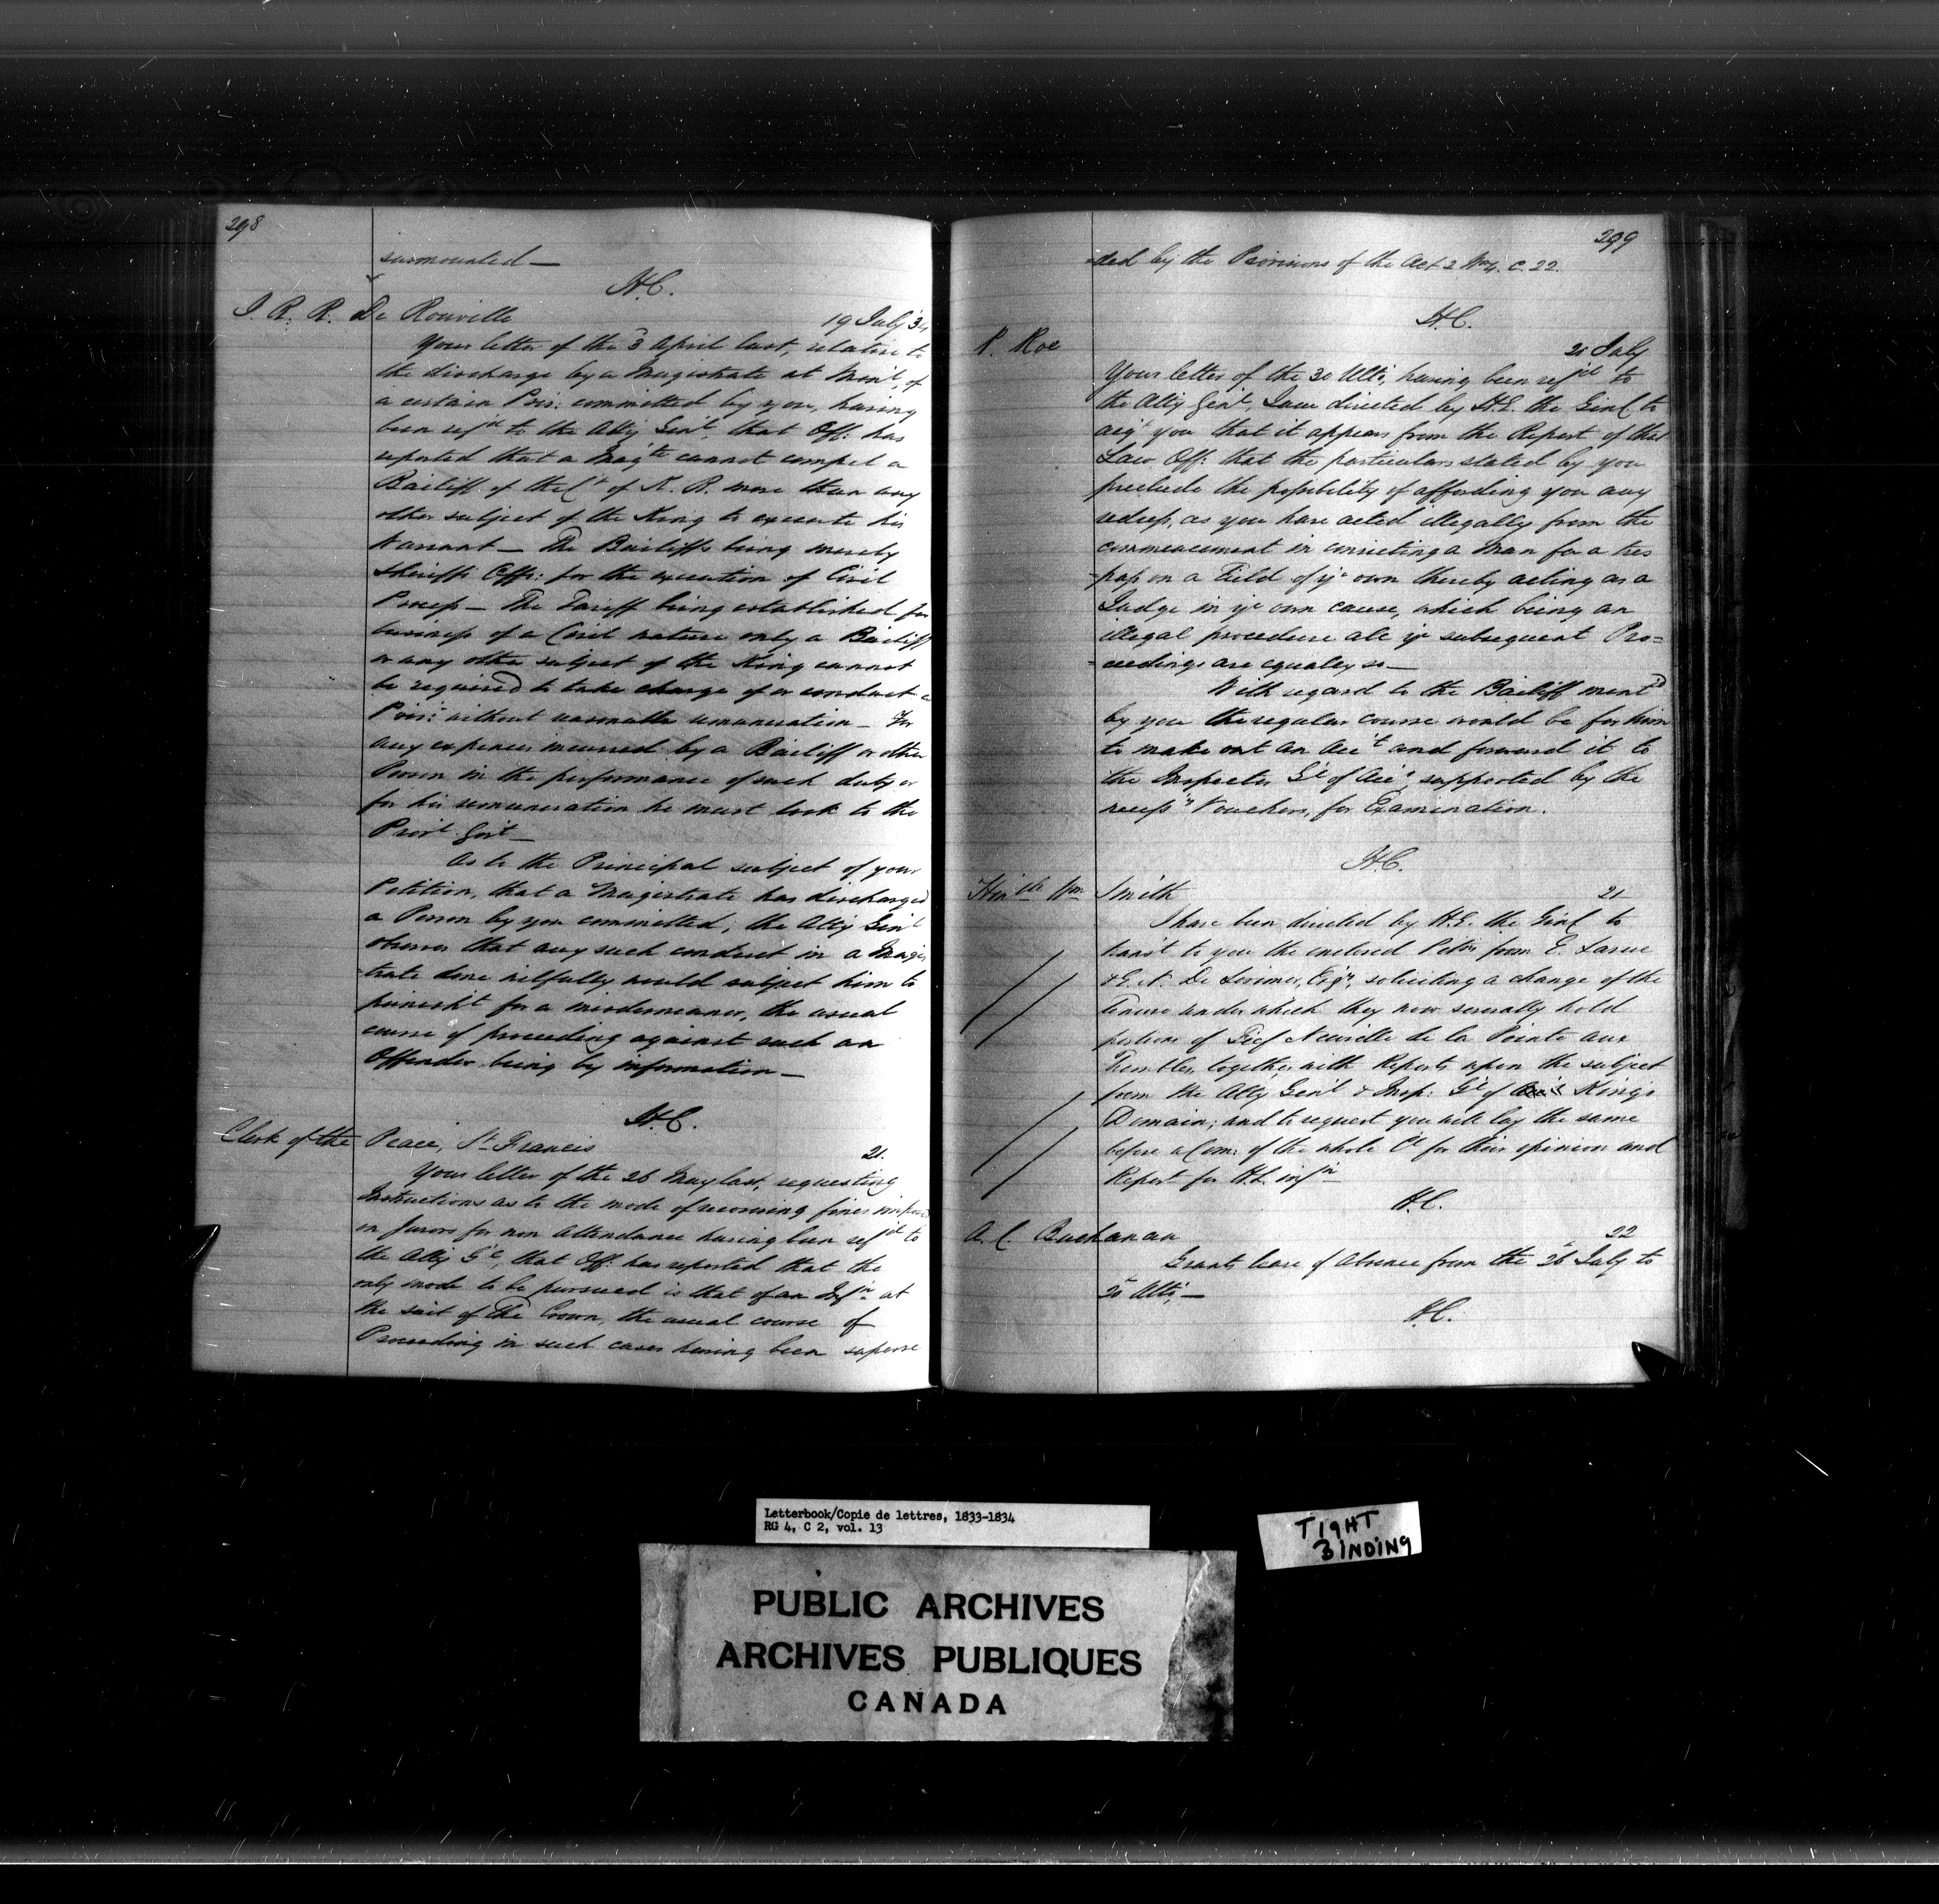 298
surmounted —
H.C.
J. R. R. De Rouville 19 July 34
Your letter of the 3 April last, relative to
the discharge by a Magistrate at Mont.l of
a certain Pris: committed by you, having
been ref.d to the Atty Gen.l, that Off: has
reported that a Mag.te cannot compel a
Bailiff of the C.t of K. B. more than any
other subject of the King to execute his
Warrant — The Bailiffs being merely
Sheriffs Offs: for the execution of Civil
Process — The Tariff being established for
business of a Civil nature only a Bailiff
or any other subject of the King cannot
be required to take charge of or conduct a
Pris: without reasonable remuneration — For
any expences incurred by a Bailiff or other
Person in the performance of such duty or
for his remuneration he must look to the
Prov.l Gov.t —
As to the Principal subject of your
Petition, that a Magistrate has discharged
a Person by you committed, the Atty Gen.l
observes that any such conduct in a Magis
trate done wilfully would subject him to
punish.t for a misdemeanor, the usual
course of proceeding against such an
Offender being by information —
H.C.
Clerk of the Peace, St. Francis 21.
Your letter of the 26 May last, requesting
Instructions as to the mode of recovering fines imposed
on Jurors for non attendance having been ref.d to
the Atty G.l, that Off: has reported that the
only mode to be pursued is that of an Inf.n at
the suit of the Crown, the usual course of
Proceeding in such cases having been superse
299
-ded by the Provisions of the Act 2 Wm 4. C. 22.
H.C.
P. Roe
21 July
Your letter of the 30 Ulto, having been ref.d to
the Atty Gen.l, I am directed by H.E. the Gov.r to
acq.t you that it appears from the Report of that
Law Off: that the particulars stated by you
preclude the possibility of affording you any
redress, as you have acted illegally from the
commencement in convicting a Man for a tres
-pass on a Field of yr own thereby acting as a
Judge in yr own cause, which being an
illegal procedure all yr subsequent Pro=
=ceedings are equally so —
With regard to the Bailiff ment.d
by you the regular course would be for him
to make out an Acc.t and forward it to
the Inspector G.l of Acc.s supported by the
necess.y Vouchers, for Examination.
H.C.
Hon.ble Wm Smith 21
I have been directed by H.E. the Gov.r to
trans.t to you the enclosed Petn from E. Larue
& E. N. De Lorimier, Esqrs, soliciting a change of the
Tenure under which they now severally hold
portions of Fief Neuville de la Pointe aux
Trembles, together with Reports upon the subject
from the Atty Gen.l & Insp: G.l of Kings
Domain; and to request you will lay the same
before a Com: of the whole C.l for their opinion and
Report for H.E. inf.n
H.C.
A. C. Buchanan 22
Grants leave of absence from the 26 July to
20 Ulto, —
H.C.
Letterbook/Copie de lettres, 1833-1834
RG 4, C 2, vol. 13
TIGHT
BINDING
PUBLIC ARCHIVES
ARCHIVES PUBLIQUES
CANADA